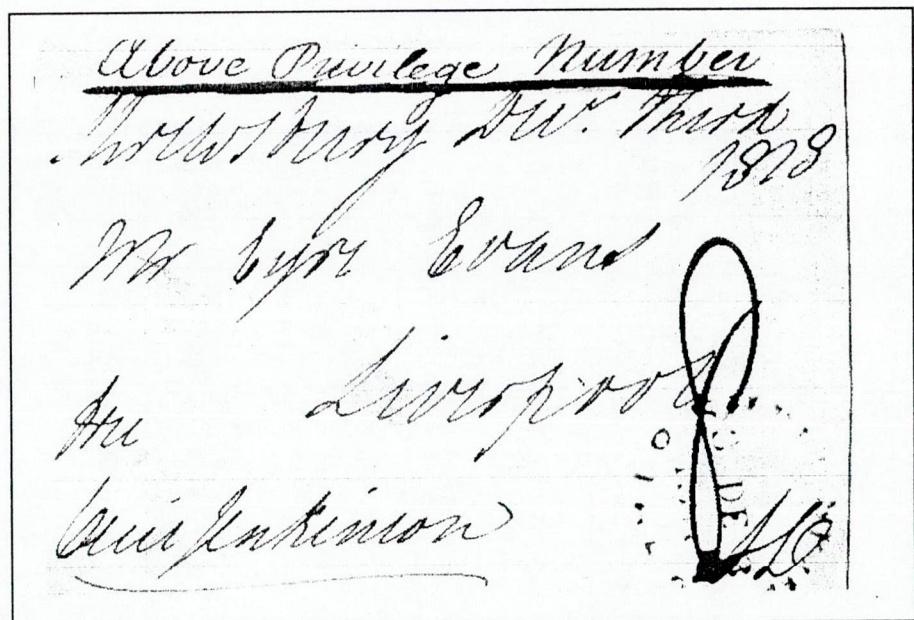 Above Privilege Number
Shrewsbury Decr. Third
1828
Mr Eyre Evans
Liverpool
Free
Jenkinson
DE